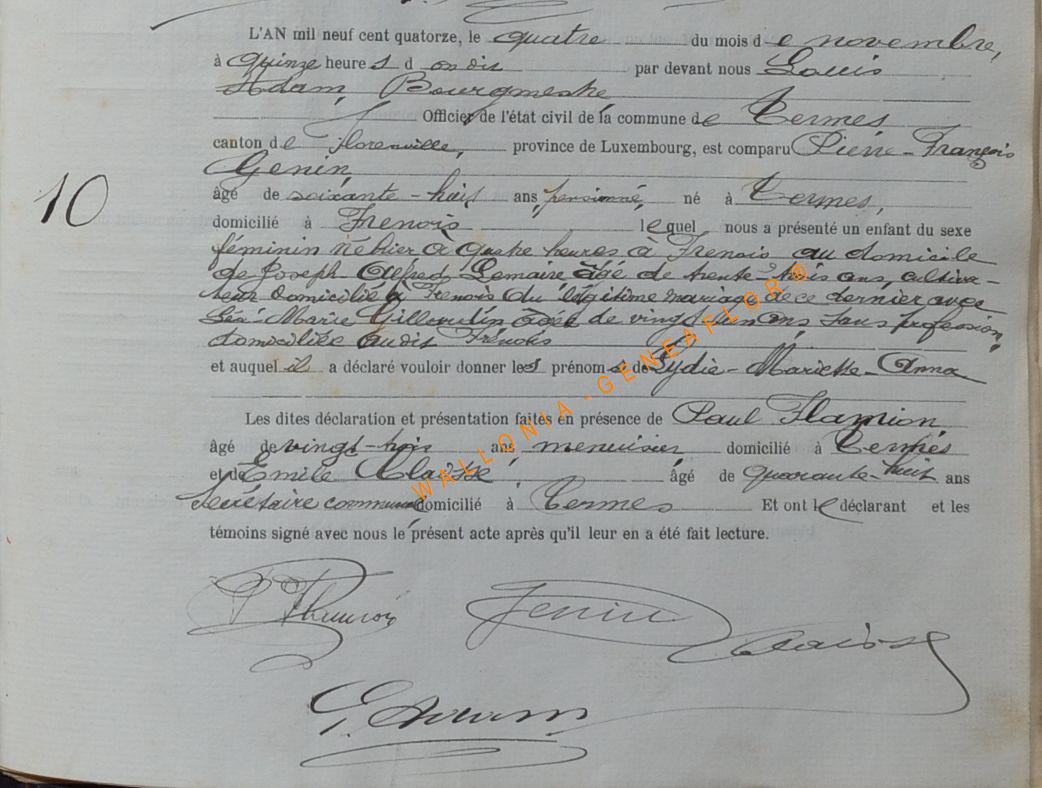 L'AN mil neuf cent quatorze, le quatre du mois de novembre,
à quinze heures du dis par devant nous Louis
Adam, Bourgmestre,
Officier de l'état civil de la commune de Termes,
canton de Florenville, province de Luxembourg, est comparu Pierre-François
Genin,
10
âgé de soixante-huit ans, pensionné, né à Termes,
domicilié à Frenois lequel nous a présenté un enfant du sexe
féminin né hier à quatre heures à Frenois au domicile
de Joseph Alfred Lemaire âgé de trente-trois ans, cultiva-
teur domicilié à Frenois du légitime mariage de ce dernier avec
Marie âgée de vingt ans, sans profession,
domiciliée audit Frenois
et auquel il a déclaré vouloir donner les prénoms de Lydie-Mariette-Anna
Les dites déclaration et présentation faites en présence de Paul Flamion
âgé de vingt-trois ans menuisier, domicilié à Termes
et de Emile Claisse, âgé de quarante-huit ans
secrétaire communal domicilié à Termes Et ont le déclarant et les
témoins signé avec nous le présent acte après qu'il leur en a été fait lecture.
P Flamion Genin Claisse
WALLONIA-GENEAFLORO